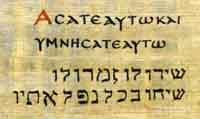 ΑϹΑΤΕΑΥΤΩΚΑΙ
ΥΜΝΗϹΑΤΕΑΥΤΩ
שירו לו זמרו לו
שיחו בכל נפלאתיו